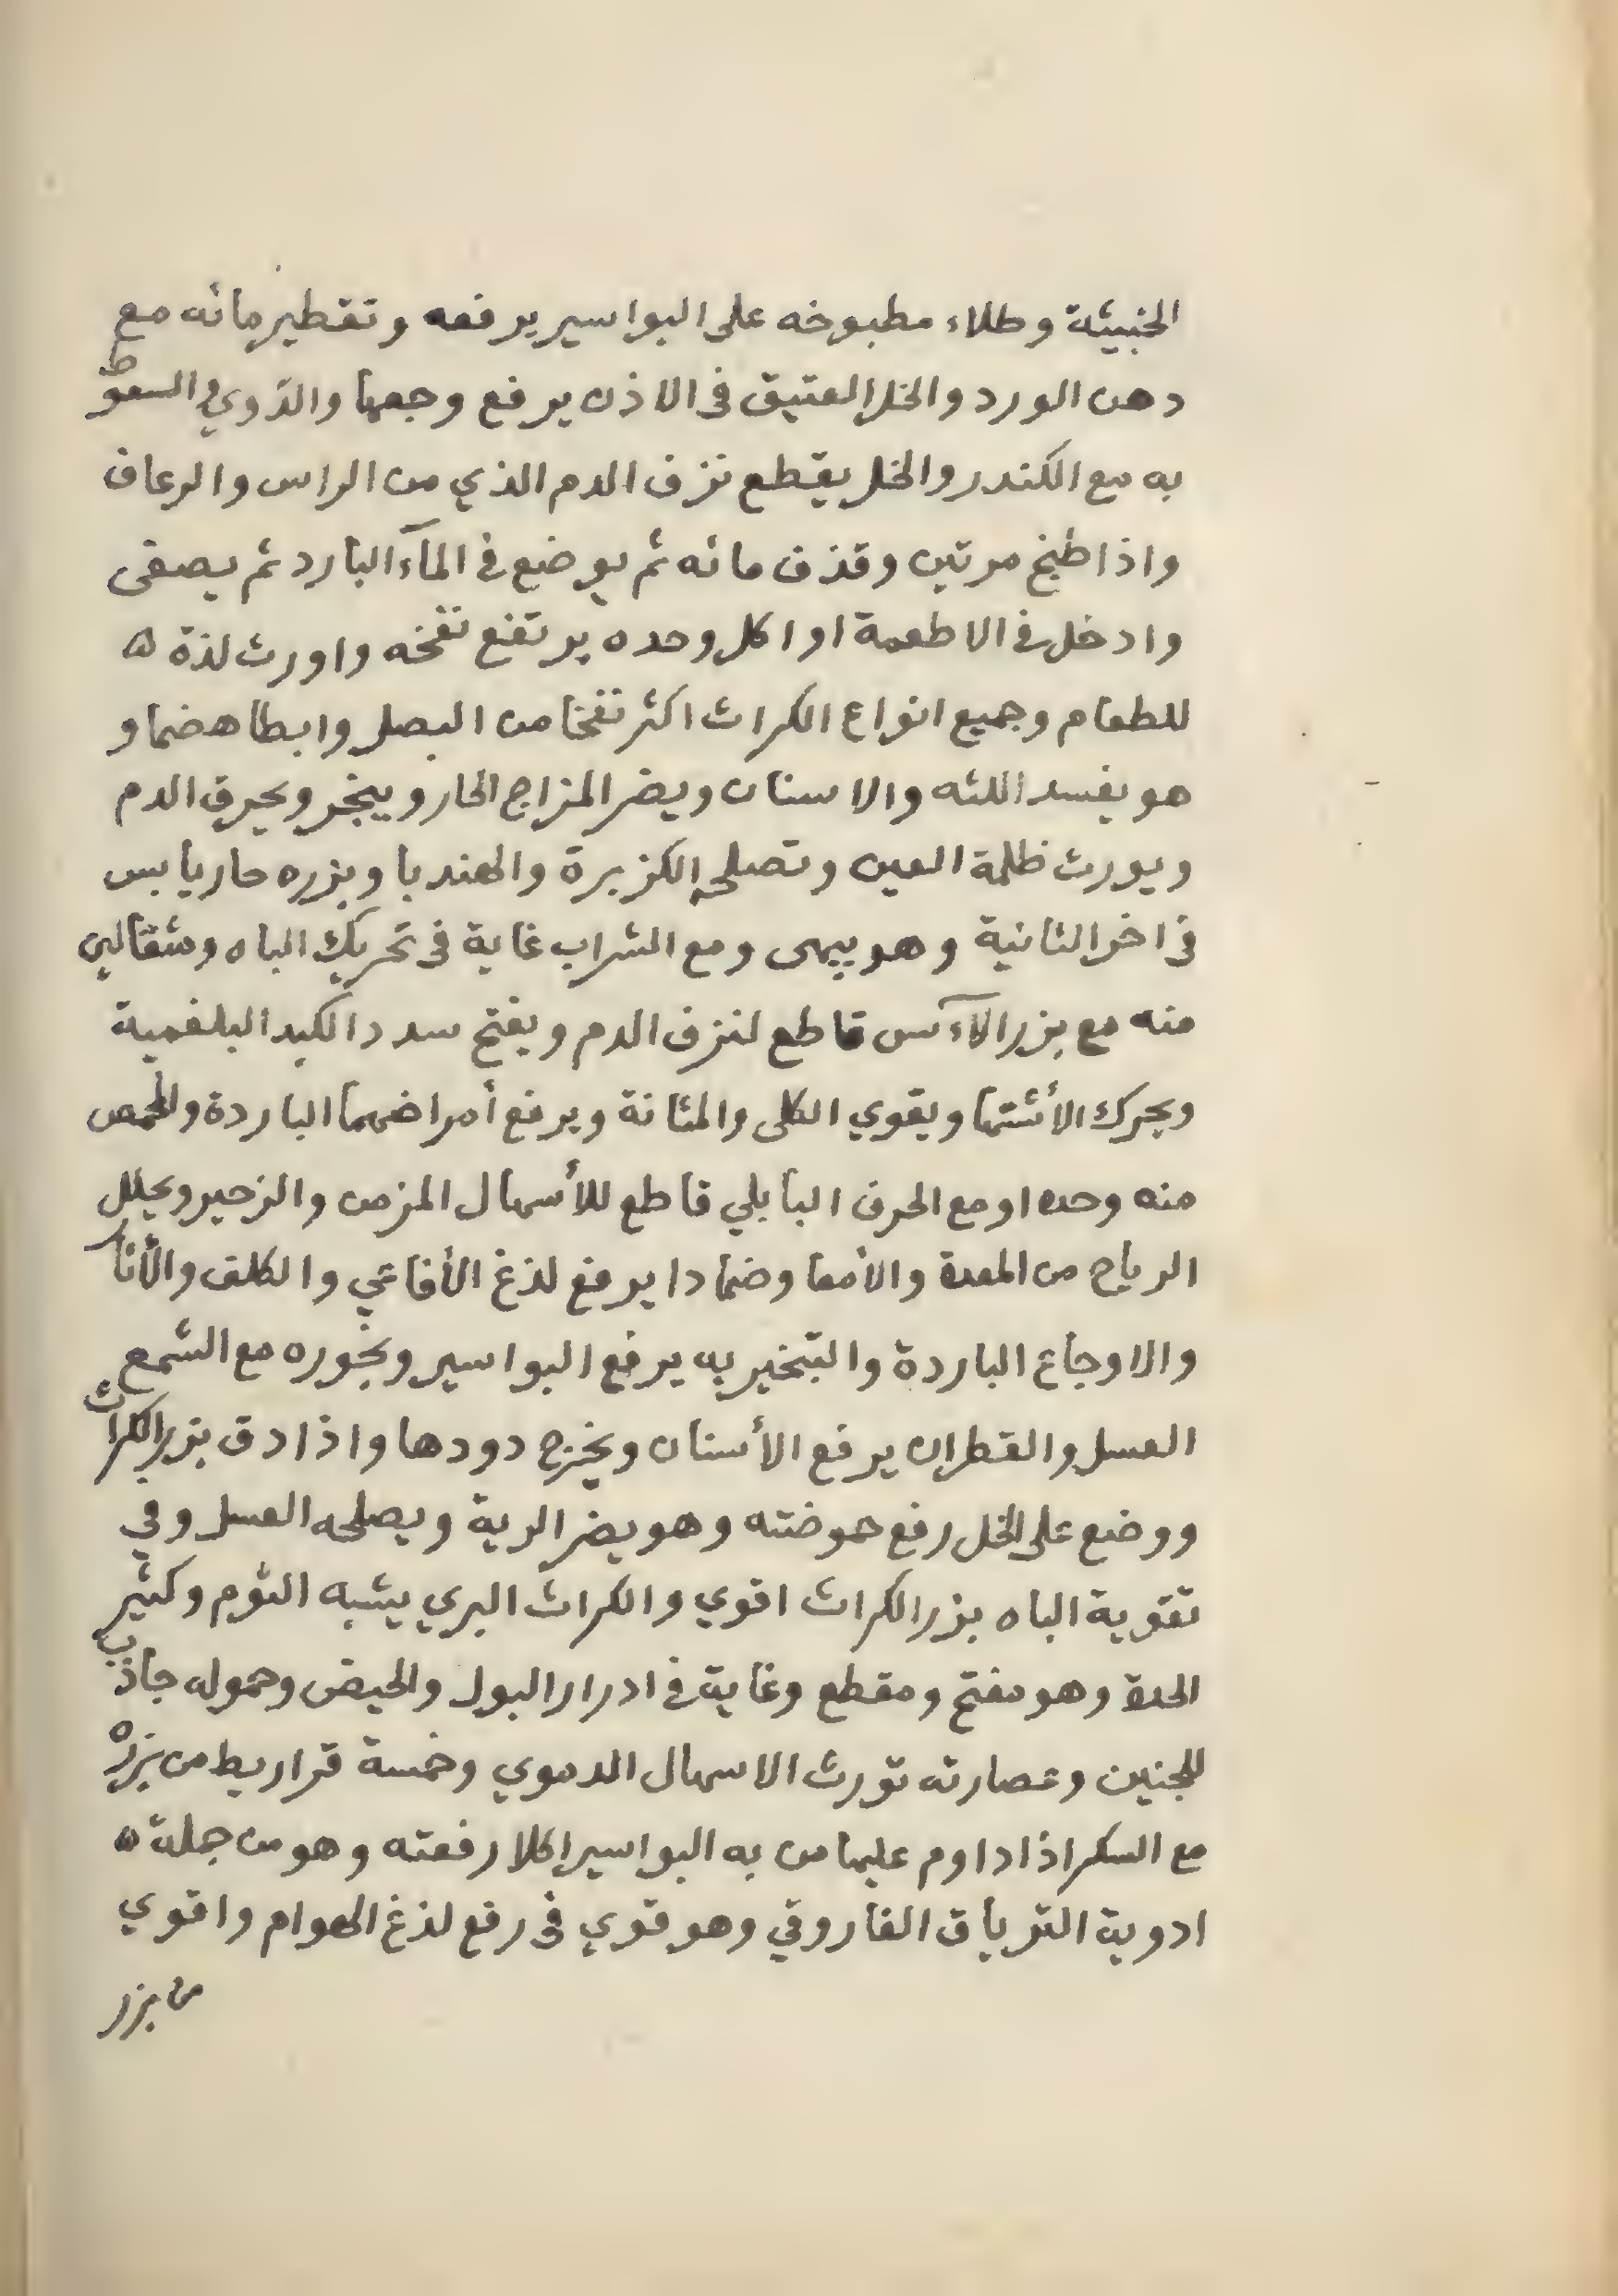 الخبيثة وطلاء مطبوخه على البواسير يرفعه وتقطير مائه مع
دهن الورد والخل العتيق فى الاذن يرفع وجعها والدوي والسعوط
به مع الكندر والخل يقطع نزف الدم الذي من الراس والرعاف
واذا طبخ مرتين وقذف مائه ثم يوضع في المآء البارد ثم يصفى
وادخل في الاطعمة او اكل وحده يرتفع نفخه واورث لذة ه
للطعام وجميع انواع الكراث اكثر نفخا من البصل وابطا هضما و
هو يفسد اللثه والاسنان ويضر المزاج الحار ويبخر ويحرق الدم
ويورث ظلمة العين وتصلحه الكزبرة والهندبا وبزره حار يابس
فى اخر الثانية وهو يبهى ومع الشراب غاية فى تحريك الباه ومثقالين
منه مع بزر الآس قاطع لنزف الدم ويفتح سدد الكبد البلغمية
ويحرك الأشتها ويقوي الكلى والمثانة ويرفع أمراضهما الباردة والمحمص
منه وحده او مع الحرف البابلي قاطع للأسهال المزمن والزحير ويحلل
الرياح من المعدة والأمعا وضمادا يرفع لذغ الأفاعي والكلف والأثار
والاوجاع الباردة والتبخير به يرفع البواسير وبخوره مع الشمع
العسل والقطران يرفع الأسنان ويخرج دودها واذا دق بزر الكراث
ووضع على الخل رفع حموضته وهو يضر الرية ويصلحه العسل وفي
تقوية الباه بزر الكراث اقوي والكراث البري يشبه الثوم وكثير
الحدة وهو مفتح ومقطع وغاية في ادرار البول والحيض وحموله جاذب
للجنين وعصارته تورث الاسهال الدموي وخمسة قراريط من بزره
مع السكر اذا داوم عليها من به البواسير اكلا رفعته وهو من جملة ه
ادوية الترياق الفاروقي وهو قوي فى رفع لذغ الهوام واقوي
من بزر